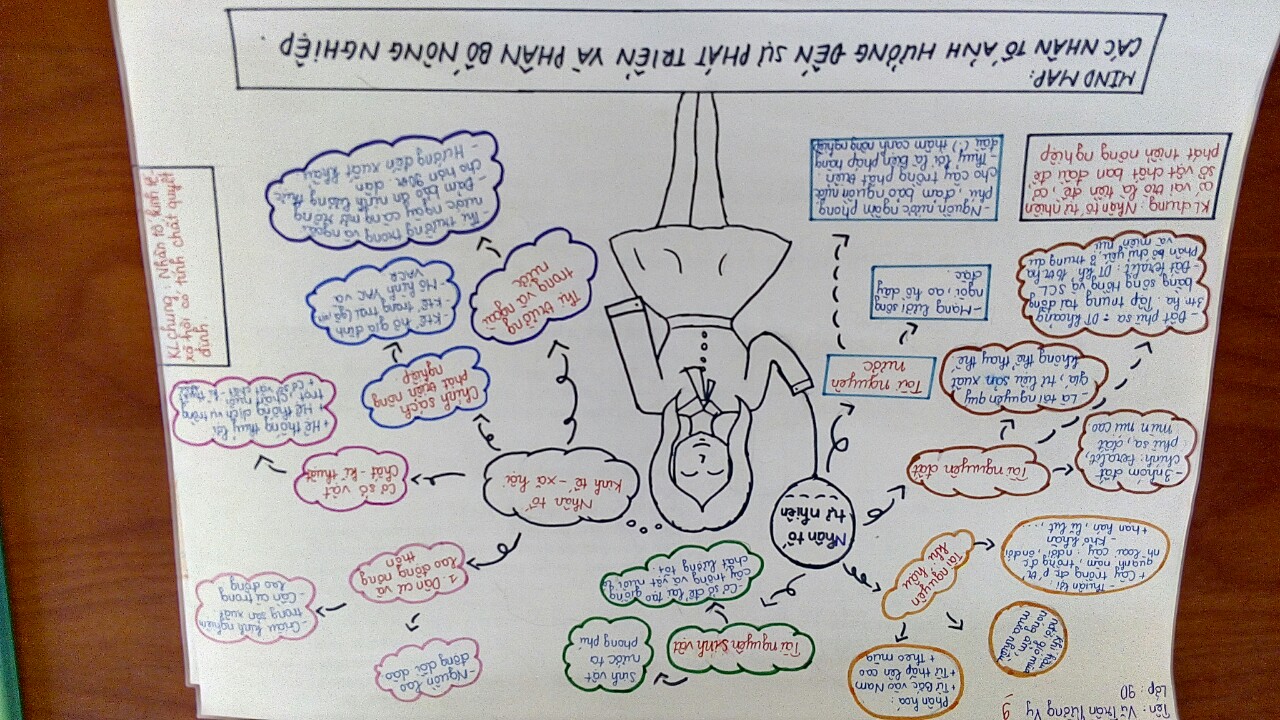 MIND MAP:
CÁC NHÂN TỐ ẢNH HƯỞNG ĐẾN SỰ PHÁT TRIỂN VÀ PHÂN BỐ NÔNG NGHIỆP.
Tên: Vũ Trần Tường Vy
Lớp: 9D
9
Nhân tố
tự nhiên
Tài nguyên đất
- 3 nhóm đất
chính: feralit,
phù sa, đất
mùn núi cao.
- Là tài nguyên quý
giá, tư liệu sản xuất
không thể thay thế
- Đất phù sa: DT khoảng
3tr ha. Tập trung tại đồng
bằng sông Hồng và SCL
- Đất feralit: DT
phân bố chủ yếu ở trung du
và miền núi
Tài nguyên
nước
- Mạng lưới sông
ngòi, ao hồ dày
đặc.
- Nguồn nước ngầm phong
phú, đảm bảo nguồn nước
cho cây trồng phát triển
- Thuỷ lợi là biện pháp hàng
đầu (.) thâm canh nông nghiệp
KL chung: Nhân tố tự nhiên
có vai trò là tiền đề, cơ
sở vật chất ban đầu để
phát triển nông nghiệp
Tài nguyên
khí hậu
- Thuận lợi
+ Cây trồng đc p tr
quanh năm, trồng đc
nh loại cây nđới, ônđới
- Khó khăn
+ hạn hán, lũ lụt, ...
Khí hậu
nđới gió mùa
nóng ẩm,
mưa nhiều
Phân hoá:
+ Từ Bắc vào Nam
+ Từ thấp lên cao
+ Theo mùa
Tài nguyên sinh vật
- Cơ sở để lai tạo giống
cây trồng và vật nuôi có
chất lượng tốt.
Sinh vật
nước ta
phong phú
Nhân tố
Kinh tế - xã hội
1. Dân cư và
lao động nông
thôn
- Nguồn lao
động dồi dào
- Giàu kinh nghiệm
trong sản xuất
- Cần cù trong
lao động
Cơ sở vật
chất - kĩ thuật
+ Hệ thống thuỷ lợi
+ Hệ thống dịch vụ trồng
trọt, chăn nuôi
+ Cơ sở vật chất kĩ thuật
Chính sách
phát triển nông
nghiệp
- Ktế hộ gia đình
- Ktế trang trại
- Mô hình VAC và
VACR
Thị trường
trong và ngoài
nước
- Thị trường trong và ngoài
nước ngày càng mở rộng
- Đảm bảo an ninh lương thực
cho hơn 90tr dân
- Hướng đến xuất khẩu
KL chung: Nhân tố kinh tế-
xã hội có tính chất quyết
định.